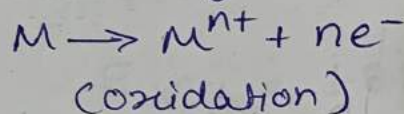 M → Mⁿ⁺ + ne⁻
(oxidation)